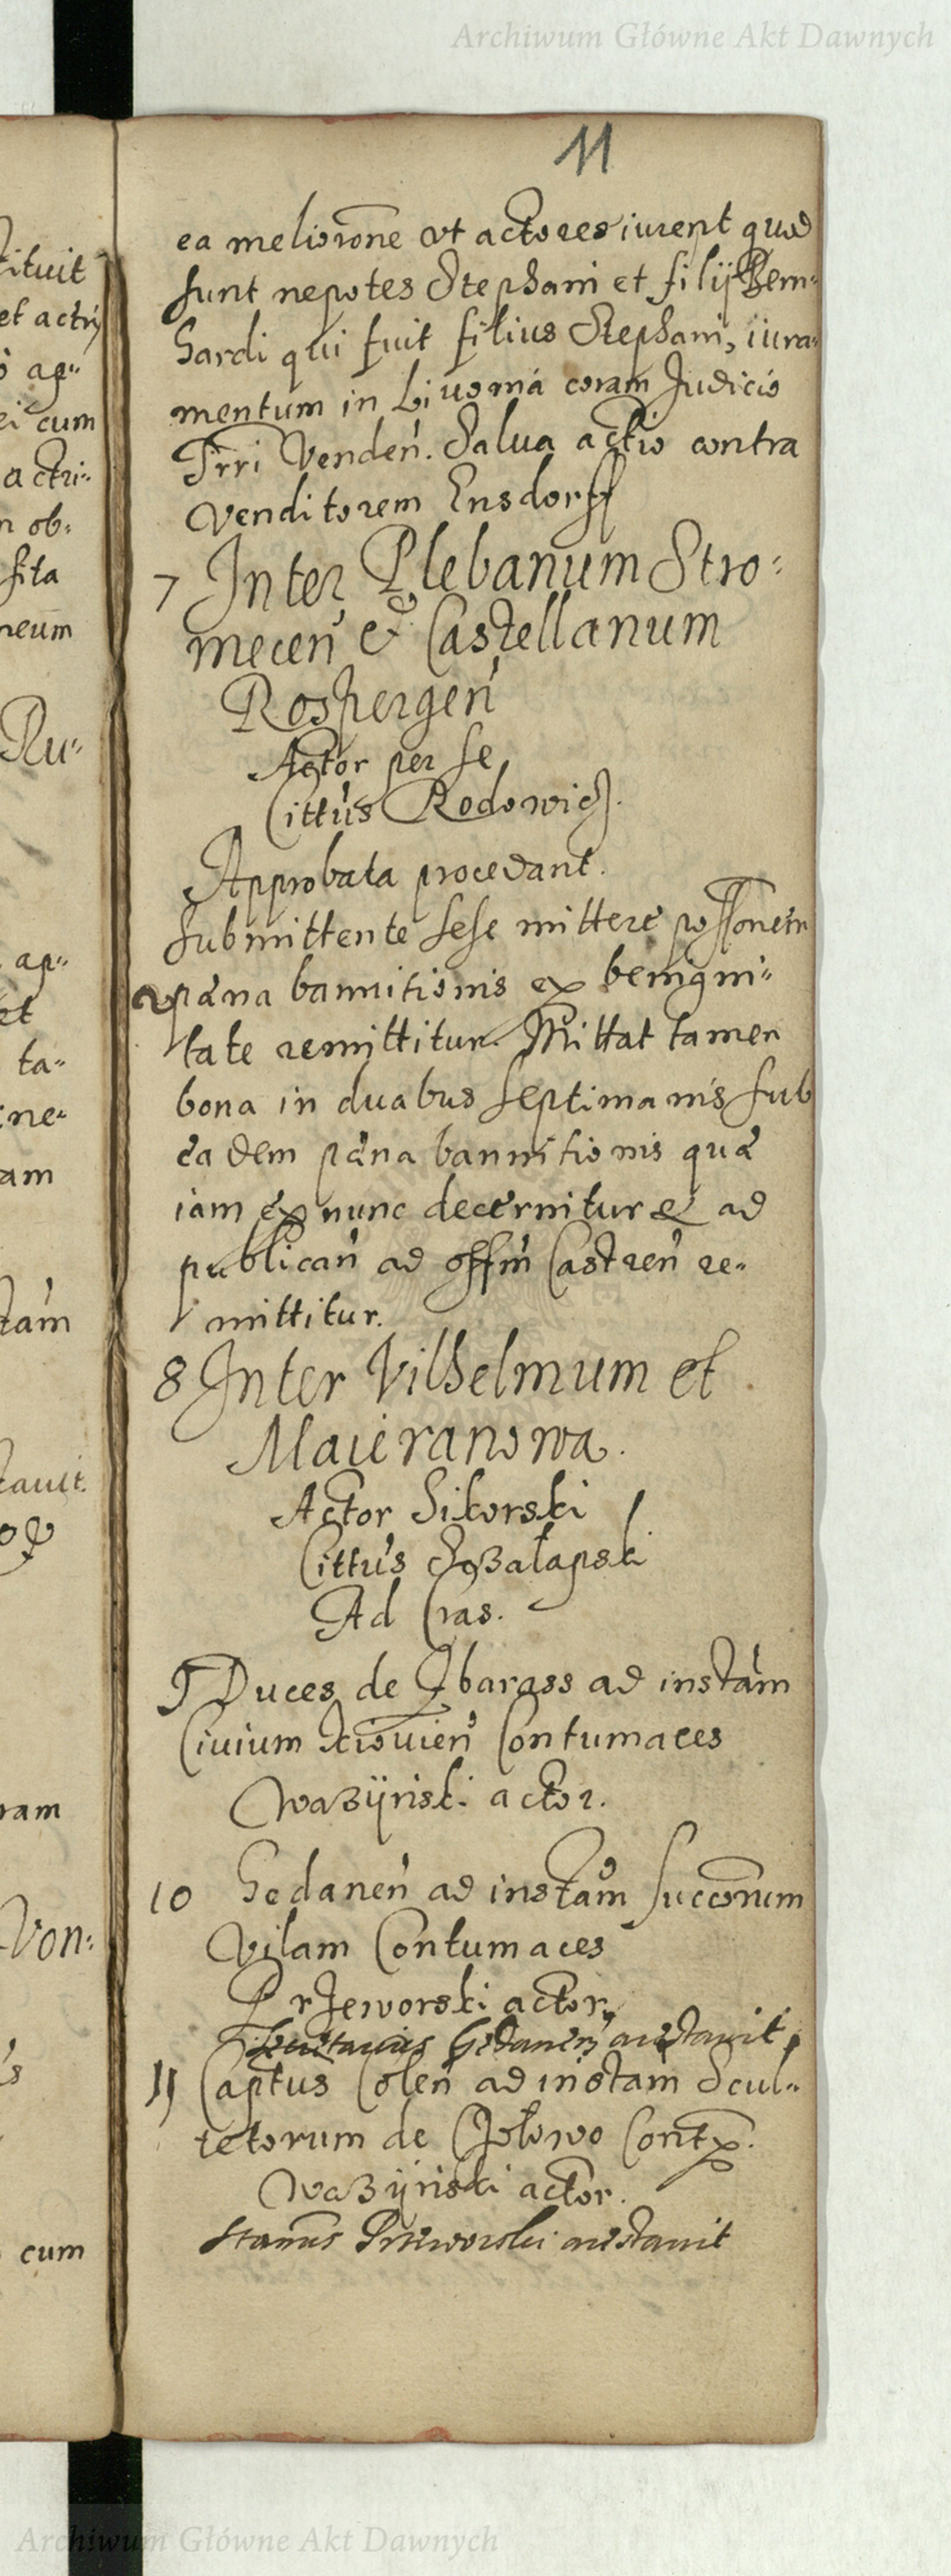 Archiwum Główne Akt Dawnych
11
ea melioraõne vt actores iurent quod
sunt nepotes Stephani et filij Bern-
hardi qui fuit filius Stephani, iura-
mentum in Livonia coram Judicio
Trri Venden. Salua actio contra
Venditorem Ensdorff
7 Inter Plebanum Stro-
mecen & Castellanum
Rospergen
Actor per se
Cittus Rodowicz.
Approbata procedant.
Submittente sese mittere possonem
pæna bannitionis ex benigni-
tate remittitur. Mittat tamen
bona in duabus septimanis sub
eadem pæna bannitionis quæ
iam ex nunc decernitur & ad
publican ad offm Castren re-
mittitur.
8 Inter Vilhelmum et
Maieranowa.
Actor Sikorski
Cittus
Ad Cras.
9 Duces de Zbarass ad instam
Ciuium Kiiouien Contumaces
Wazÿnski actor.
10 Gedanen ad instam Succorum
Vilam Contumaces
Przeworski actor.
Secretarius Gedanen arestauit.
11 Captus Colen ad instam Scul-
tetorum de Czołowo Cont.
Wazÿnski actor.
Stanus Przeworski arestauit
tituit
et actri
ap-
ei cum
actri-
ob-
sita
neum
Ru-
ap-
et
ta-
ne-
am
tam
tauit.
ram
Von-
cum
Archiwum Główne Akt Dawnych